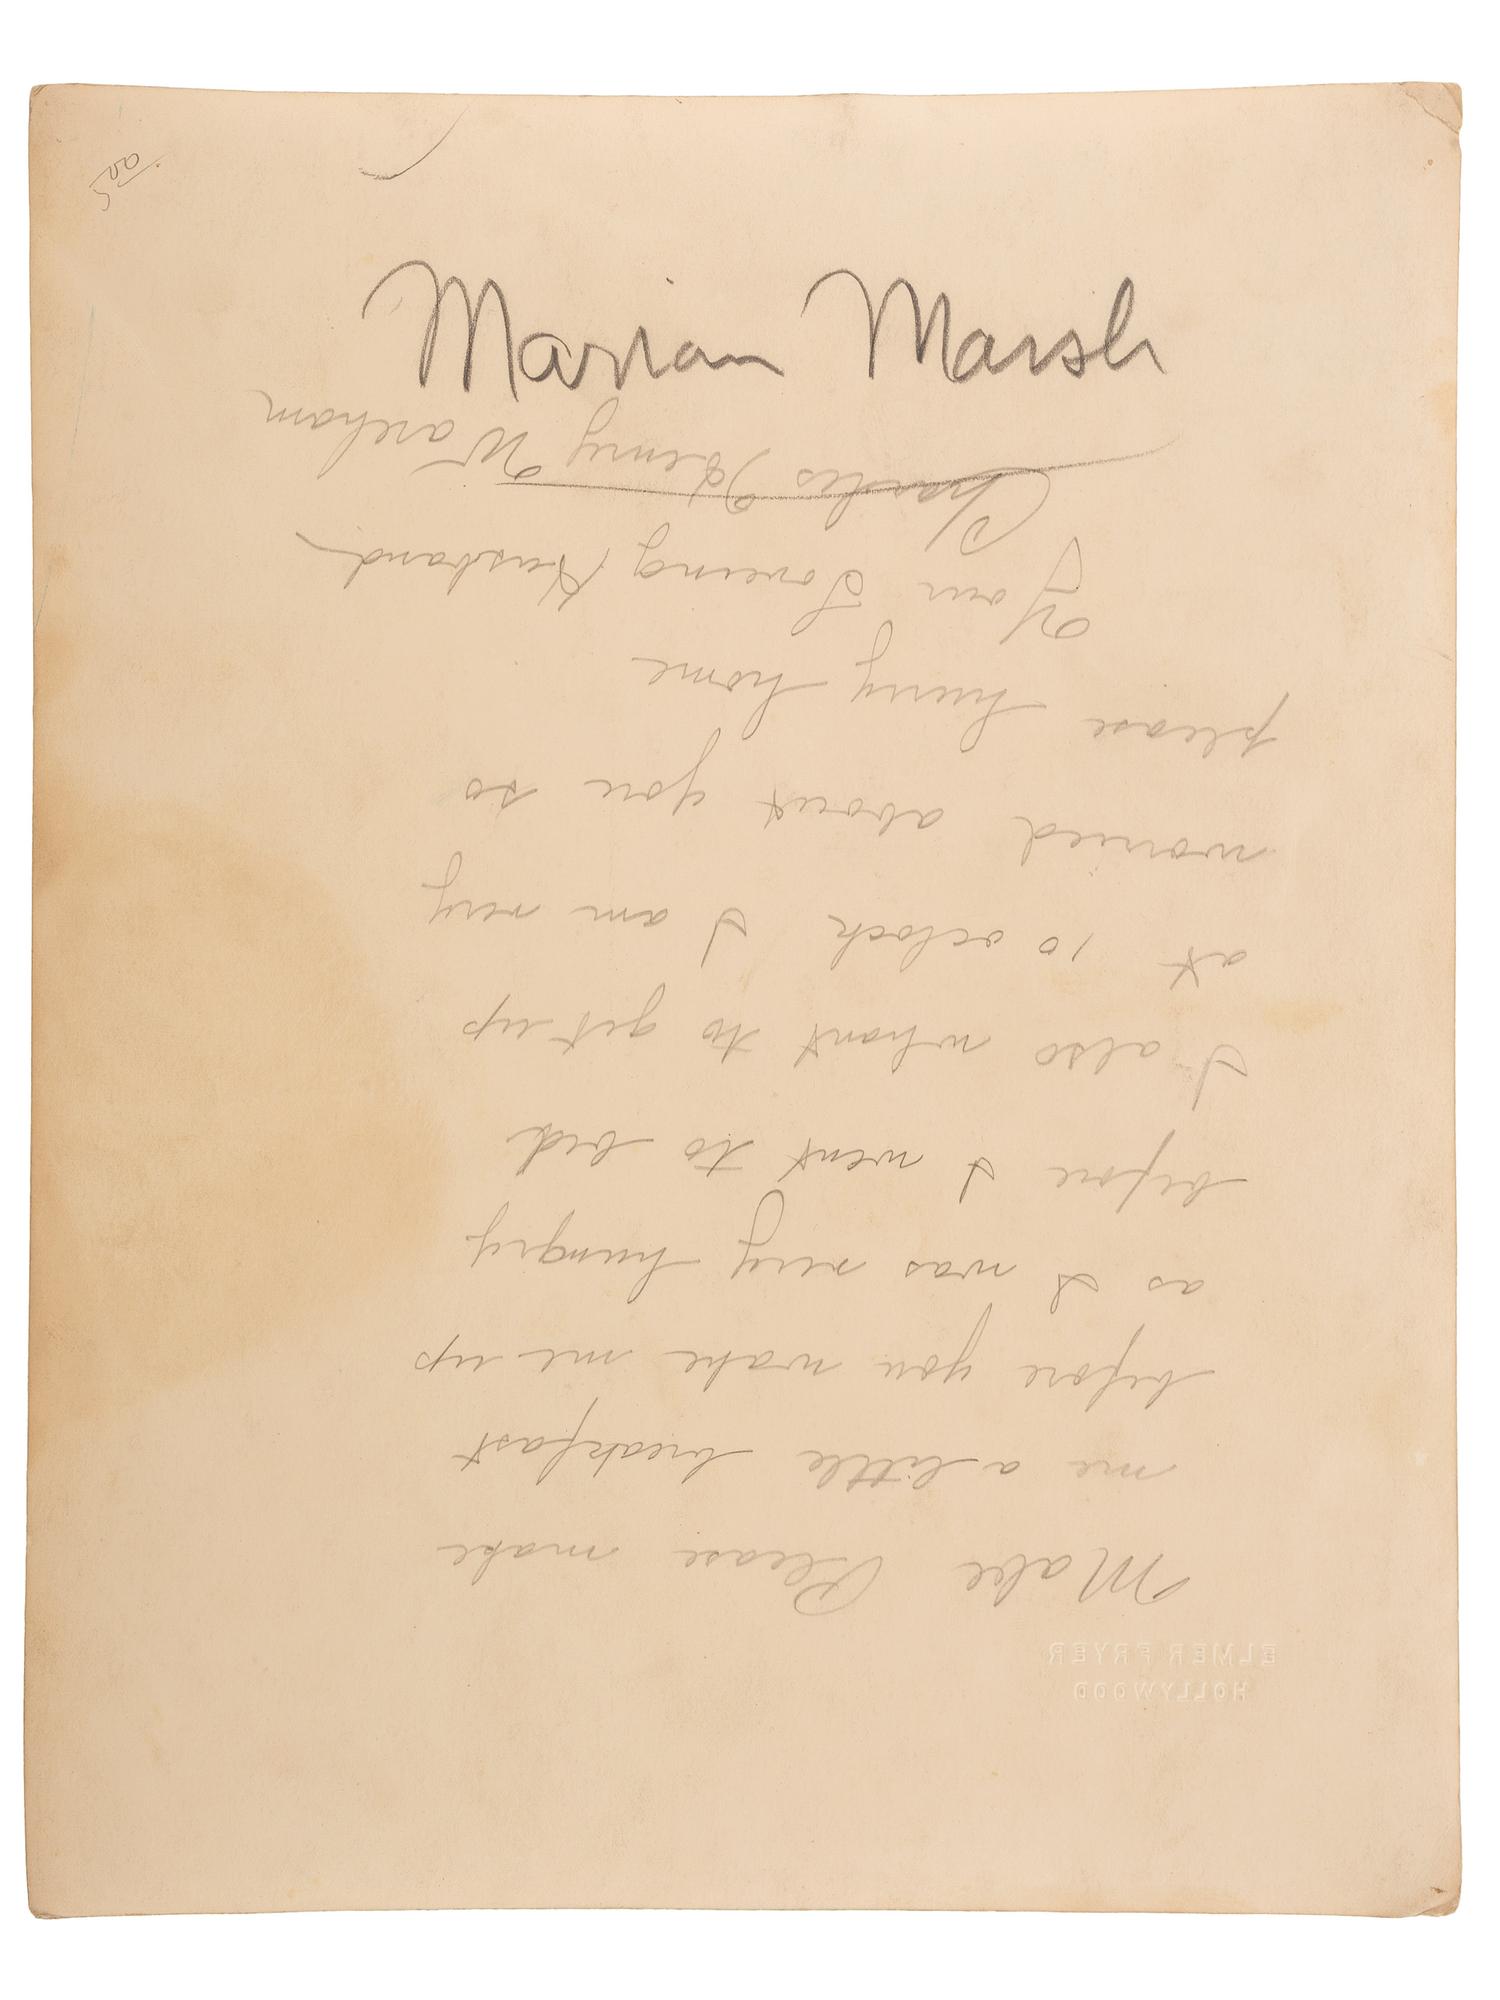 Marian Marsh
Mabel Please make
me a little breakfast
before you wake me up
as I was very hungry
before I went to bed
I also whant to get up
at 10 oclock I am very
worried about you so
please hurry home
Your Loveing Husband
Charles Henry Wareham
ELMER FRYER
HOLLYWOOD